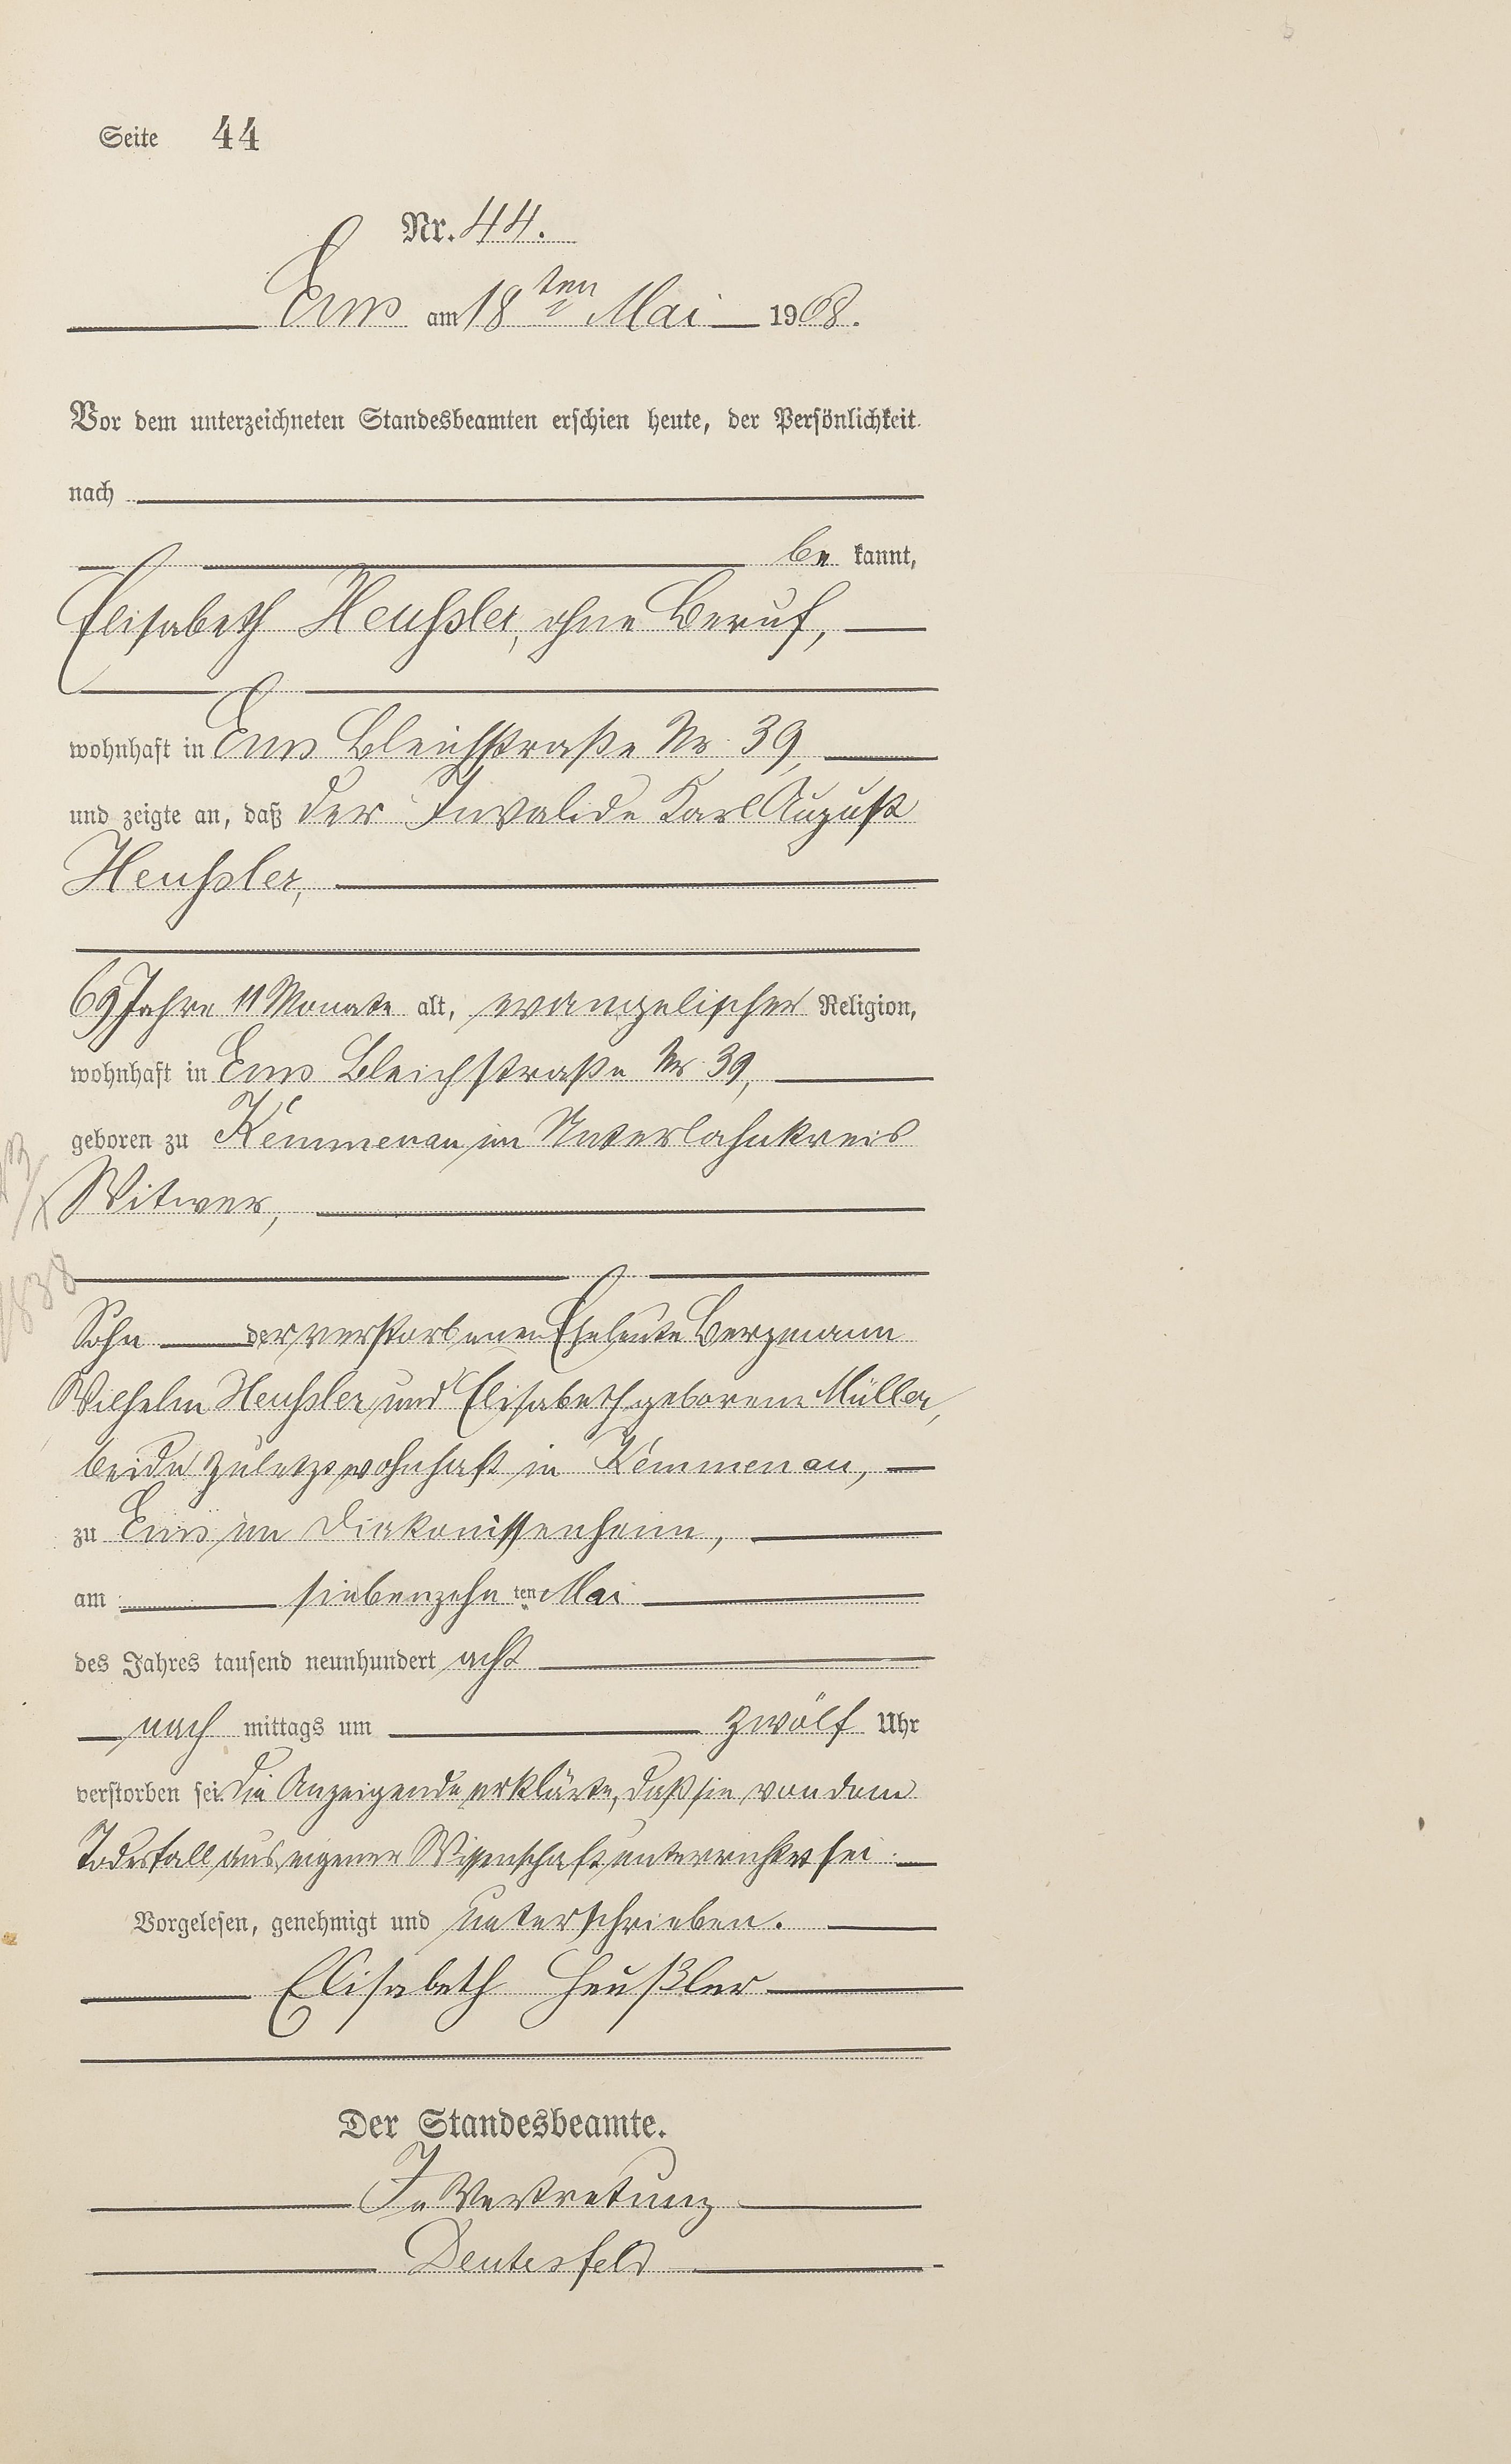 Seite 44
Nr. 44.
Ems am 18ten Mai 1908.
Vor dem unterzeichneten Standesbeamten erschien heute, der Persönlichkeit
nach
be kannt,
Elisabeth Heußler, ohne Beruf,
wohnhaft in Ems Bleichstraße Nr. 39,
und zeigte an, daß der Invalide Karl August
Heußler,
69 Jahre 11 Monate alt, evangelischer Religion,
wohnhaft in Ems Bleichstraße Nr. 39,
geboren zu Kemmenau im Unterlahnkreis
Witwer,
1838
Sohn der verstorbenen Eheleute Bergmann
Wilhelm Heußler und Elisabeth geborene Müller,
beide zuletzt wohnhaft in Kemmenau,
zu Ems im Diakonissenheim,
am siebenzehn ten Mai
des Jahres tausend neunhundert acht
nach mittags um zwölf Uhr
verstorben sei. Die Anzeigende erklärte, daß sie von dem
Todesfall aus eigener Wissenschaft unterrichtet sei.
Vorgelesen, genehmigt und unterschrieben.
Elisabeth Heußler
Der Standesbeamte.
In Vertretung
Deutesfeld